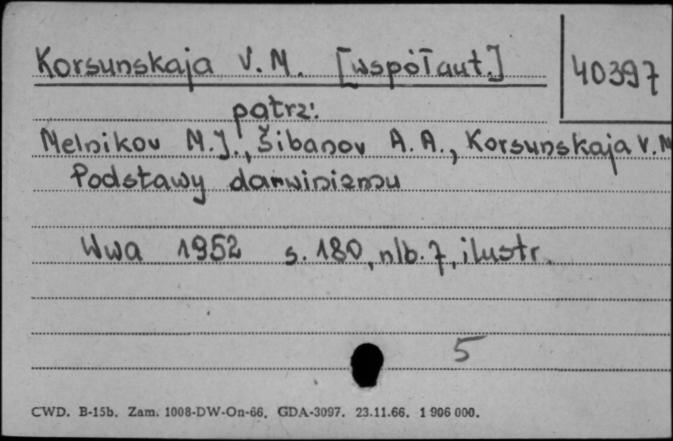 Korsunskaja V. M. [współaut.]
40397
patrz:
Melnikov M. J., Šibanov A. A., Korsunskaja V. M
Podstawy darwinizmu
Wwa 1952 s. 180, nlb. 7, ilustr.
5
CWD. B-15b. Zam. 1008-DW-On-66. GDA-3097. 23.11.66. 1 906 000.